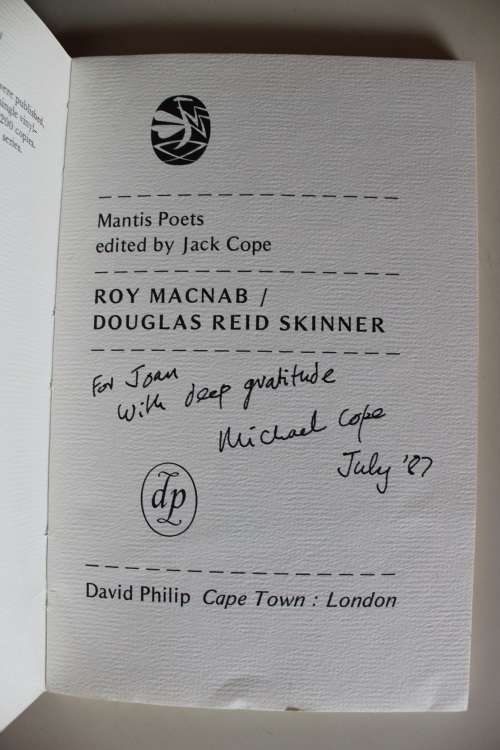 were published,
single vinyl-
200 copies.
series.
Mantis Poets
edited by Jack Cope
ROY MACNAB /
DOUGLAS REID SKINNER
For Joan
With deep gratitude
Michael Cope
July '87
dp
David Philip Cape Town : London